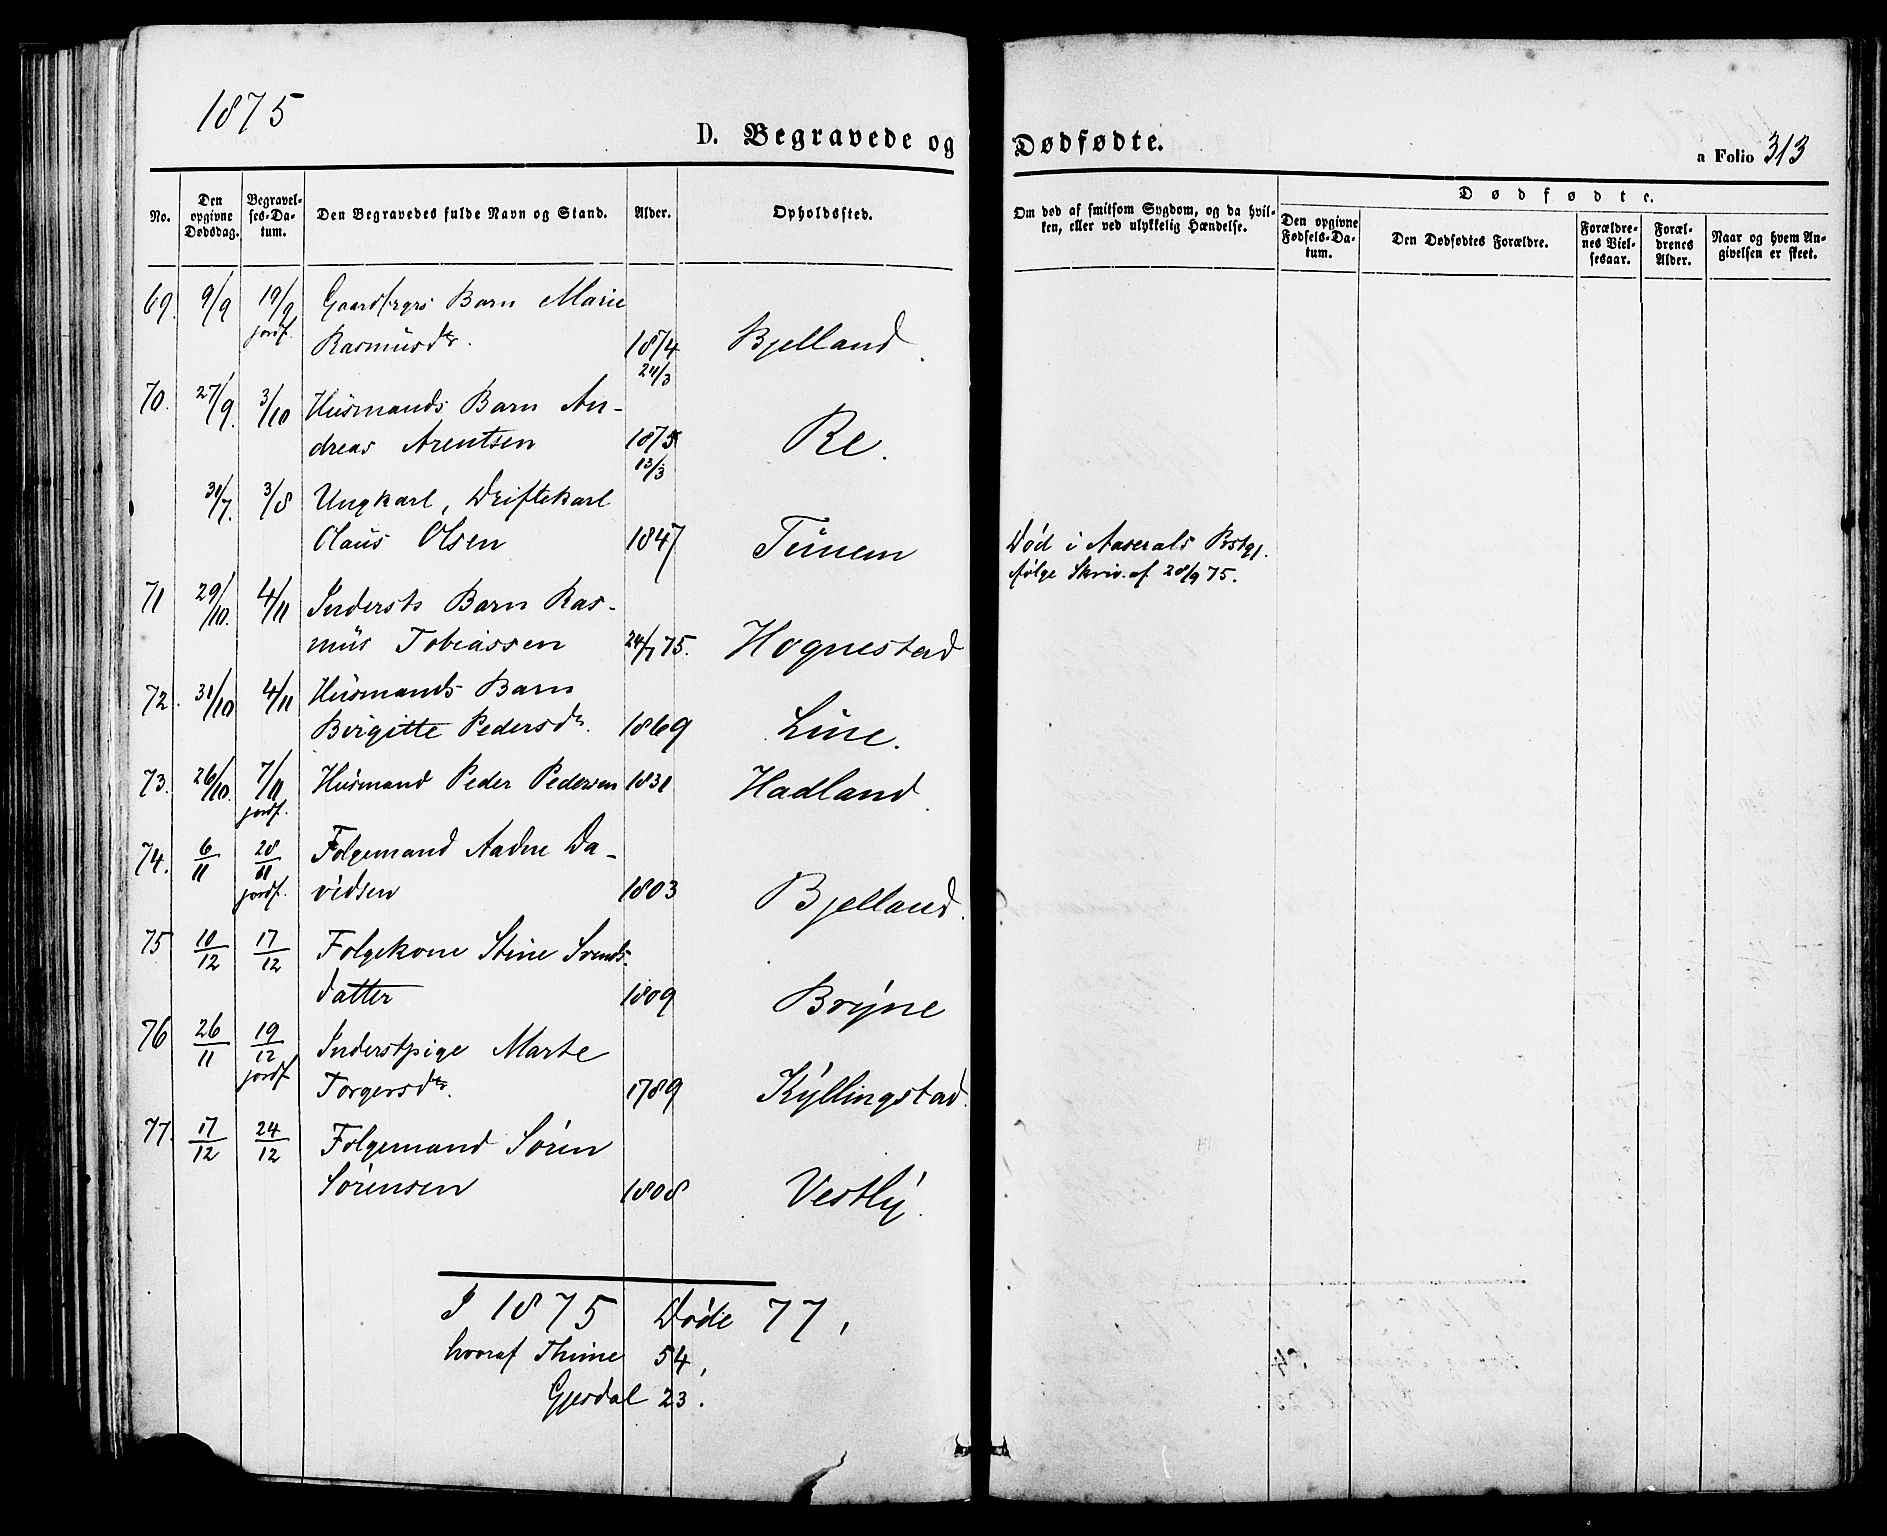 1875
D. Begravede og Dødfødte.
a Folio 313
No.
Den opgivne Dødsdag.
Begravelses-Datum.
Den Begravedes fulde Navn og Stand.
Alder.
Opholdssted.
Om død af smitsom Sygdom, og da hvilken, eller ved ulykkelig Hændelse.
Dødfødte.
Den opgivne Fødsels-Datum.
Den Dødfødtes Forældre.
Forældrenes Vielsesaar.
Forældrenes Alder.
Naar og hvem Angivelsen er skeet.
69. 9/9 19/9 Barn Marie
jordf. Rasmusdr. 1874 Bjelland.
24/3
70. 27/9. 3/10 Husmands Barn An-
dreas Arentsen 1875 Re.
13/3
31/7. 3/8 Ungkarl, Driftekarl
Claus Olsen 1847 Tunem Død i Aaserals Pstgj.
følge Skriv. af 28/9 75.
71 29/10. 4/11 Indersts Barn Ras-
mus Tobiassen 24/7 75. Hognestad
72. 31/10 4/11 Husmands Barn
Birgitte Pedersdr. 1869 Line.
73. 26/10. 7/11 Husmand Peder Pedersen 1831 Hadland.
jordf.
74. 6/11 28/11 Folgemand Aadne Da-
jordf. vidsen 1803 Bjelland.
75 10/12 17/12 Folgekone Stine Svends-
datter 1809 Bryne
76 26/11 19/12 Inderstpige Marte
jordf Torgersdr. 1789 Kyllingstad.
77. 17/12 24/12 Folgemand Sören
Sörensen 1808 Vestly.
I 1875 Døde 77,
hvoraf Thime 54,
Gjesdal 23.